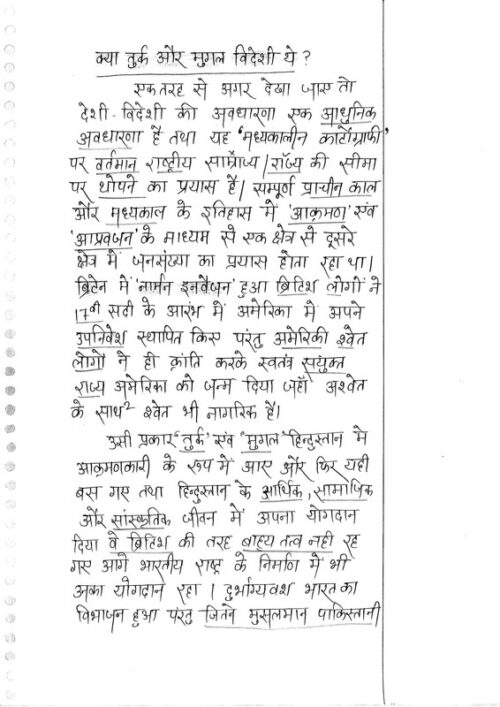 क्या तुर्क और मुगल विदेशी थे ?
एक तरह से अगर देखा जाए तो
देशी-विदेशी की अवधारणा एक आधुनिक
अवधारणा है तथा यह 'मध्यकालीन कार्टोग्राफी'
पर वर्तमान राष्ट्रीय साम्राज्य / राज्य की सीमा
पर थोपने का प्रयास है। सम्पूर्ण प्राचीन काल
और मध्यकाल के इतिहास में 'आक्रमण' एवं
'आप्रवजन' के माध्यम से एक क्षेत्र से दूसरे
क्षेत्र में जनसंख्या का प्रयास होता रहा था।
ब्रिटेन में 'नार्मन इनवैजन' हुआ ब्रिटिश लोगों ने
17वी सदी के आरंभ में अमेरिका में अपने
उपनिवेश स्थापित किए परंतु अमेरिकी श्वेत
लोगों ने ही क्रांति करके स्वतंत्र सयुंक्त
राज्य अमेरिका को जन्म दिया जहाँ अश्वेत
के साथ2 श्वेत भी नागरिक है।
उसी प्रकार "तुर्क" एवं "मुगल" हिन्दुस्तान मे
आक्रमणकारी के रूप में आए और फिर यही
बस गए तथा हिन्दुस्तान के आर्थिक, सामाजिक
और सांस्कृतिक जीवन में अपना योगदान
दिया वे ब्रिटिश की तरह बाह्य तत्व नही रह
गए आगे भारतीय राष्ट्र के निर्माण में भी
उनका योगदान रहा । दुर्भाग्यवश भारत का
विभाजन हुआ परंतु जितने मुसलमान पाकिस्तानी